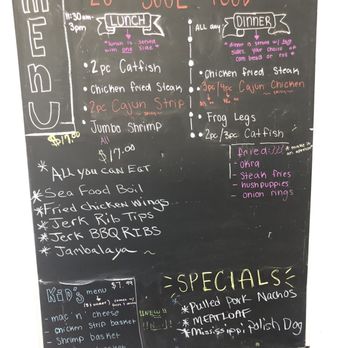 MENU
SOUL FOOD
11:30am-
3pm
LUNCH
* lunch is served
with one side *
- 2pc Catfish
- chicken fried steak
- 2pc Cajun Strip
- Jumbo Shrimp
All day
DINNER
* dinner is served w/ two
sides, your choice of
corn bread or roll *
- Chicken fried Steak
- 3pc/4pc Cajun Chicken
- Frog Legs
- 2pc/3pc Catfish
$17.00
All
$17.00
*ALL YOU CAN EAT
*Sea Food Boil
*Fried chicken wings
*Jerk Rib Tips
*Jerk BBQ RIBS
*Jambalaya ~
fried
- okra
- steak fries
- hushpuppies
- onion rings
KiD's menu $7.99
- mac 'n' cheese
- chicken strip basket
- shrimp basket
"NEW"
SPECIALS
*Pulled Pork Nachos
*MEATLOAF
*Mississippi Polish Dog